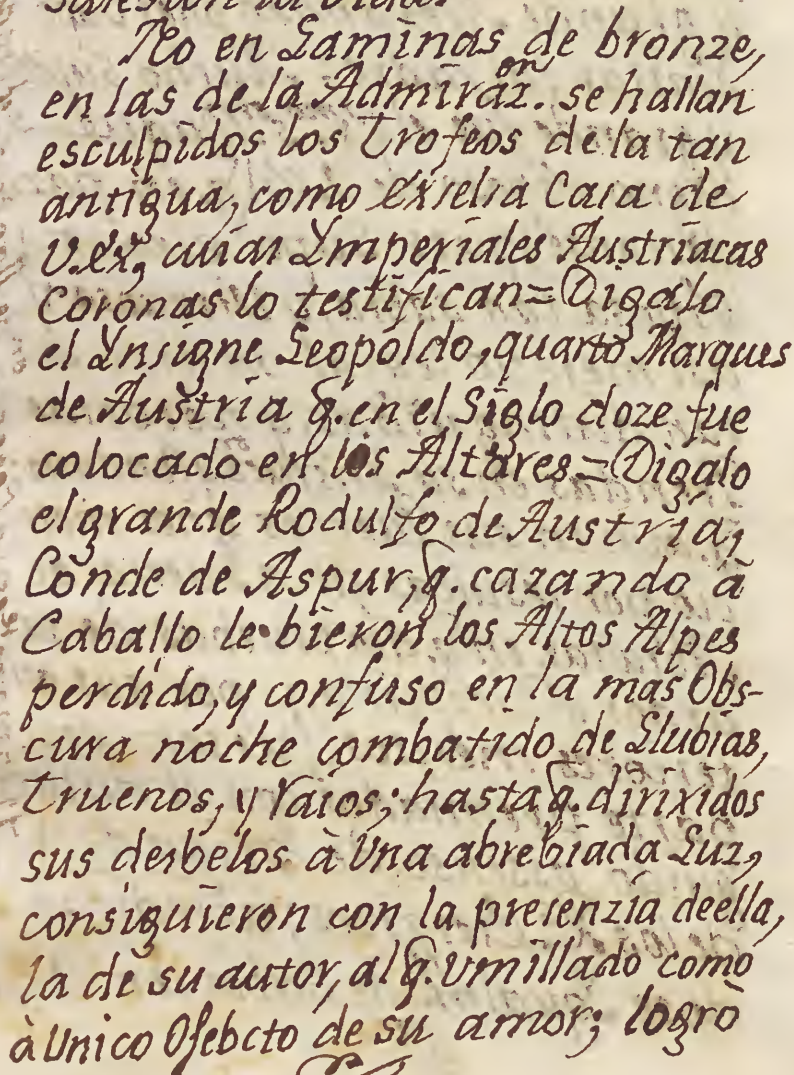 No en Laminas de bronze,
en las de la Admiraz.on se hallan
esculpidos los Trofeos de la tan
antigua, como exselsa Casa de
V.ex, cuias Ymperiales Austriacas
Coronas lo testifican=Digalo
el Ynsigne Leopoldo, quarto Marques
de Austria q. en el Siglo doze fue
colocado en los Altares=Digalo
el grande Rodulfo de Austria,
Conde de Aspur, q. cazando à
Caballo le bieron los Altos Alpes
perdido, y confuso en la mas Obs-
cura noche combatido de Llubias,
Truenos, y raios; hasta q. dirixidos
sus desbelos à Una abrebiada Luz,
consiguieron con la presenzia deella,
la de su autor, al q. Umillado como
à Unico Ofebcto de su amor; logrò